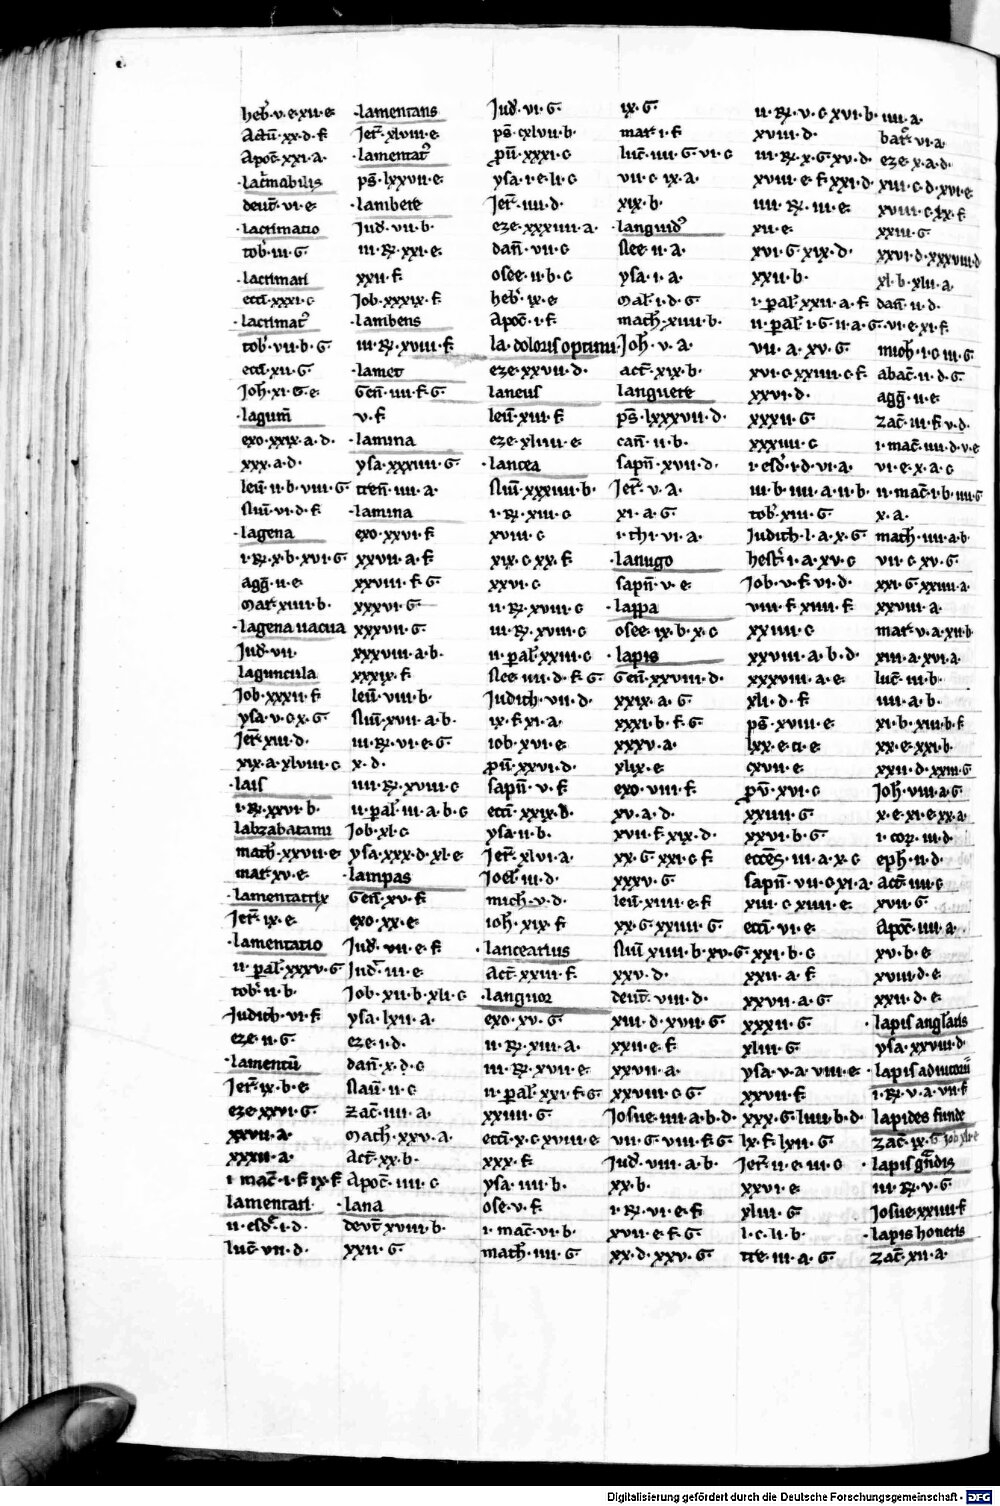 heb̄·v·e·xii·e
Actū·xx·d·f
Apoc̄·xxi·a·
·lac̄mabilis
deut̄·vi·e·
·lacrimatio
tob̄·iii·G·
·lacrimari
ecc̄i·xxxi·c
·lacrimat᷒
tob̄·vii·b·G
ecc̄i·xii·G
Joh̄·xi·G·e·
·lagum̄
exo·xxix·a·d·
xxx·a·d·
leū·ii·b·viii·G
Nuū·vi·d·f
·lagena
i·R̄·x·b·xvi·G
agḡ·ii·e·
mar̄·xiiii·b·
·lagena uacua
Jud̄·vii·
laguncula
Job·xxxii·f
ysa·v·c·x·G
Jer̄·xiii·d·
xix·a·xlviii·c
·lais
i·R̄·xxvi·b·
labzabatani
math̄·xxvii·e
mar̄·xv·e·
·lamentatrix
Jer̄·ix·e·
·lamentatio
ii·pal̄·xxxv·G
tob̄·ii·b·
Judith·vi·f
eze·ii·G·
·lamentū
Jer̄·ix·b·e
eze·xxvi·G·
xxvii·a·
xxxii·a·
i·mac̄·i·f·ix·f·
lamentari·
ii·esd̄·i·d·
luc̄·vii·d·
·lamentans
Jer̄·xlviii·e·
·lamentat᷒
ps̄·lxxvii·e·
·lambere
Jud̄·vii·b·
iii·R̄·xxi·e·
xxii·f·
Job·xxxix·f·
·lambens
iii·R̄·xviii·f·
·lamet
Gen̄·iiii·f·G·
v·f·
·lamina
ysa·xxxiiii·G·
tren̄·iiii·a·
·lamina
exo·xxvi·f·
xxvii·a·f·
xxviii·f·G·
xxxvi·G
xxxvii·G·
xxxviii·a·b·
xxxix·f·
leū·viii·b·
Nuū·xvii·a·b·
iii·R̄·vi·e·G·
x·d·
iiii·R̄·xviii·c
ii·pal̄·iii·a·b·c
Job·xl·c
ysa·xxx·d·xl·e
·lampas
Gen̄·xv·f·
exo·xx·e·
Jud̄·vii·e·f·
Jud̄·iii·e·
Job·xii·b·xli·c
ysa·lxii·a·
eze·i·d·
dan̄·x·d·c
Naū·ii·c
zac̄·iiii·a·
Math̄·xxv·a·
Act̄·xx·b·
Apoc̄·iiii·c
·lana
deut̄·xviii·b·
xxii·G·
Jud̄·vi·G·
ps̄·cxlvii·b·
p̄u·xxxi·c
ysa·i·e·li·c
Jer̄·iiii·d·
eze·xxxiiii·a·
dan̄·vii·c
osee·ii·b·c
heb̄·ix·e
Apoc̄·i·f·
la·doloris optimi
eze·xxvii·d·
laneus
leū·xiii·f
eze·xliiii·e
·lancea
Nuū·xxxiiii·b·
i·R̄·xiii·c
xviii·c
xix·c·xx·f·
xxvi·c
ii·R̄·xviii·c
iii·R̄·xviii·c
ii·pal̄·xxiii·c
Nee·iiii·d·f·G·
Judith·vii·d·
ix·f·xi·a·
iob·xvi·e
p̄u·xxvi·d·
sapn̄·v·f·
ecc̄i·xxix·b·
ysa·ii·b·
Jer̄·xlvi·a·
Joel̄·iii·d·
mich·v·d·
ioh̄·xix·f
·lancearius
Act̄·xxiii·f·
·languor
exo·xv·G·
ii·R̄·xiii·a·
iii·R̄·xvii·e
ii·pal̄·xxi·f·G·
xxiiii·G·
ecc̄i·x·c·xviii·e
xxx·f·
ysa·iiii·b·
ose·v·f·
i·mac̄·vi·b·
math̄·iiii·G
ix·G·
mar̄·i·f·
luc̄·iiii·G·vi·c
vii·c·ix·a·
xix·b·
·languid᷒
Nee·ii·a·
ysa·i·a·
Mal̄·i·d·G
mach̄·xiiii·b·
Joh̄·v·a·
act̄·xix·b·
languere
ps̄·lxxxvii·d·
can̄·ii·b·
sapn̄·xvii·d·
Jer̄·v·a·
xi·a·G·
i·thi·vi·a·
·lanugo
sapn̄·v·e·
·lappa
osee·ix·b·x·c
·lapis
Gen̄·xxviii·d·
xxix·a·G·
xxxi·b·f·G
xxxv·a·
xlix·e
exo·viii·f·
xv·a·d·
xvii·f·xix·d·
xx·G·xxi·c·f
xxxv·G
leū·xiiii·e·f
xx·G·xxiiii·G
Nuū·xiiii·b·xv·G
xxv·d·
deut̄·viii·d·
xiii·d·xvii·G
xxii·e·f·
xxvii·a·
xxviii·c·G·
Josue·iiii·a·b·d·
vii·G·viii·f·G
Jud̄·viii·a·b·
xx·b·
i·R̄·vi·e·f·
xvii·e·f·G
xx·d·xxv·G
ii·R̄·v·c·xvi·b·
xviii·d·
iii·R̄·x·G·xv·d·
xviii·e·f·xxi·d·
iiii·R̄·iii·e·
xii·e·
xvi·G·xix·d·
xxii·b·
i·pal̄·xxii·a·f·
ii·pal̄·i·G·ii·a·G·
vii·a·xv·G·
xvi·c·xxiiii·c·f
xxvi·d·
xxxii·G·
xxxiiii·c
i·esd̄·i·d·vi·a·
iii·b·iiii·a·ii·b·
tob̄·xiii·G·
Judith·i·a·x·G
hest̄·i·a·xv·c
Job·v·f·vi·d·
viii·f·xiiii·f·
xxiiii·c
xxviii·a·b·d·
xxxviii·a·e·
xli·d·f·
ps̄·xviii·e·
lxx·e·ci·e
cxvii·e
p̄v·xvi·c
xxiiii·G·
xxvi·b·G·
ecc̄es·iii·a·x·c
sapn̄·vii·c·xi·a·
xiii·c·xiiii·e·
ecc̄i·vi·e
xxi·b·c
xxii·a·f·
xxvii·a·G·
xxxii·G·
xliii·G·
ysa·v·a·viii·e·
xxvii·f·
xxx·G·liiii·b·d·
lx·f·lxii·G·
Jer̄·ii·e·iii·c
xxvi·e·
xliii·G
l·c·li·b·
tre·iii·a·G·
iiii·a·
bar̄·vi·a·
eze·x·a·d·
xiii·c·d·xvi·e·
xviii·c·ix·f
xxiii·G
xxvi·d·xxxviii·d
xl·b·xlii·a·
dan̄·ii·d·
vi·e·xi·f·
mich̄·i·c·iii·G
abac̄·ii·d·G·
agḡ·ii·e
zac̄·iii·f·v·d·
i·mac̄·iiii·d·v·e
vi·e·x·a·c
ii·mac̄·i·b·iiii·G
x·a·
math̄·iiii·a·b
vii·c·xv·G·
xxi·G·xxiiii·a·
xxviii·a·
mar̄·v·a·xii·b
xiii·a·xvi·a·
luc̄·iii·b·
iiii·a·b·
xi·b·xiii·b·f
xx·e·xxi·b·
xxii·d·xxiii·G
Joh̄·viii·a·G
x·e·xi·e·xx·a·
i·cor̄·iii·d·
eph̄·ii·d·
act̄·iiii·c
xvii·G
Apoc̄·iiii·a·
xv·b·e
xviii·d·e
xxii·d·e·
·lapis anglaris
ysa·xxviii·d
·lapis adiutorii
i·R̄·v·a·vii·f
lapides funde
zac̄·ix·G·Job xli·e
·lapis g̃ndis
iii·R̄·v·G
Josue·xxiiii·f
·lapis honeris
zac̄·xii·a·
Digitalisierung gefördert durch die Deutsche Forschungsgemeinschaft - DFG